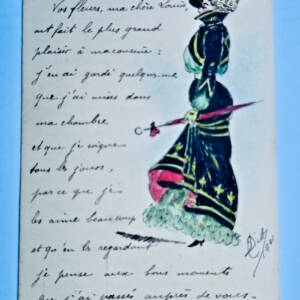 Vos fleurs, ma chère Louise,
ont fait le plus grand
plaisir à ma cousine :
j'en ai gardé quelques-unes
que j'ai mises dans
ma chambre
et que je soigne
tous les jours,
par ce que je
les aime beaucoup
et qu'en les regardant
je pense aux bons moments
que j'ai passés auprès de vous-